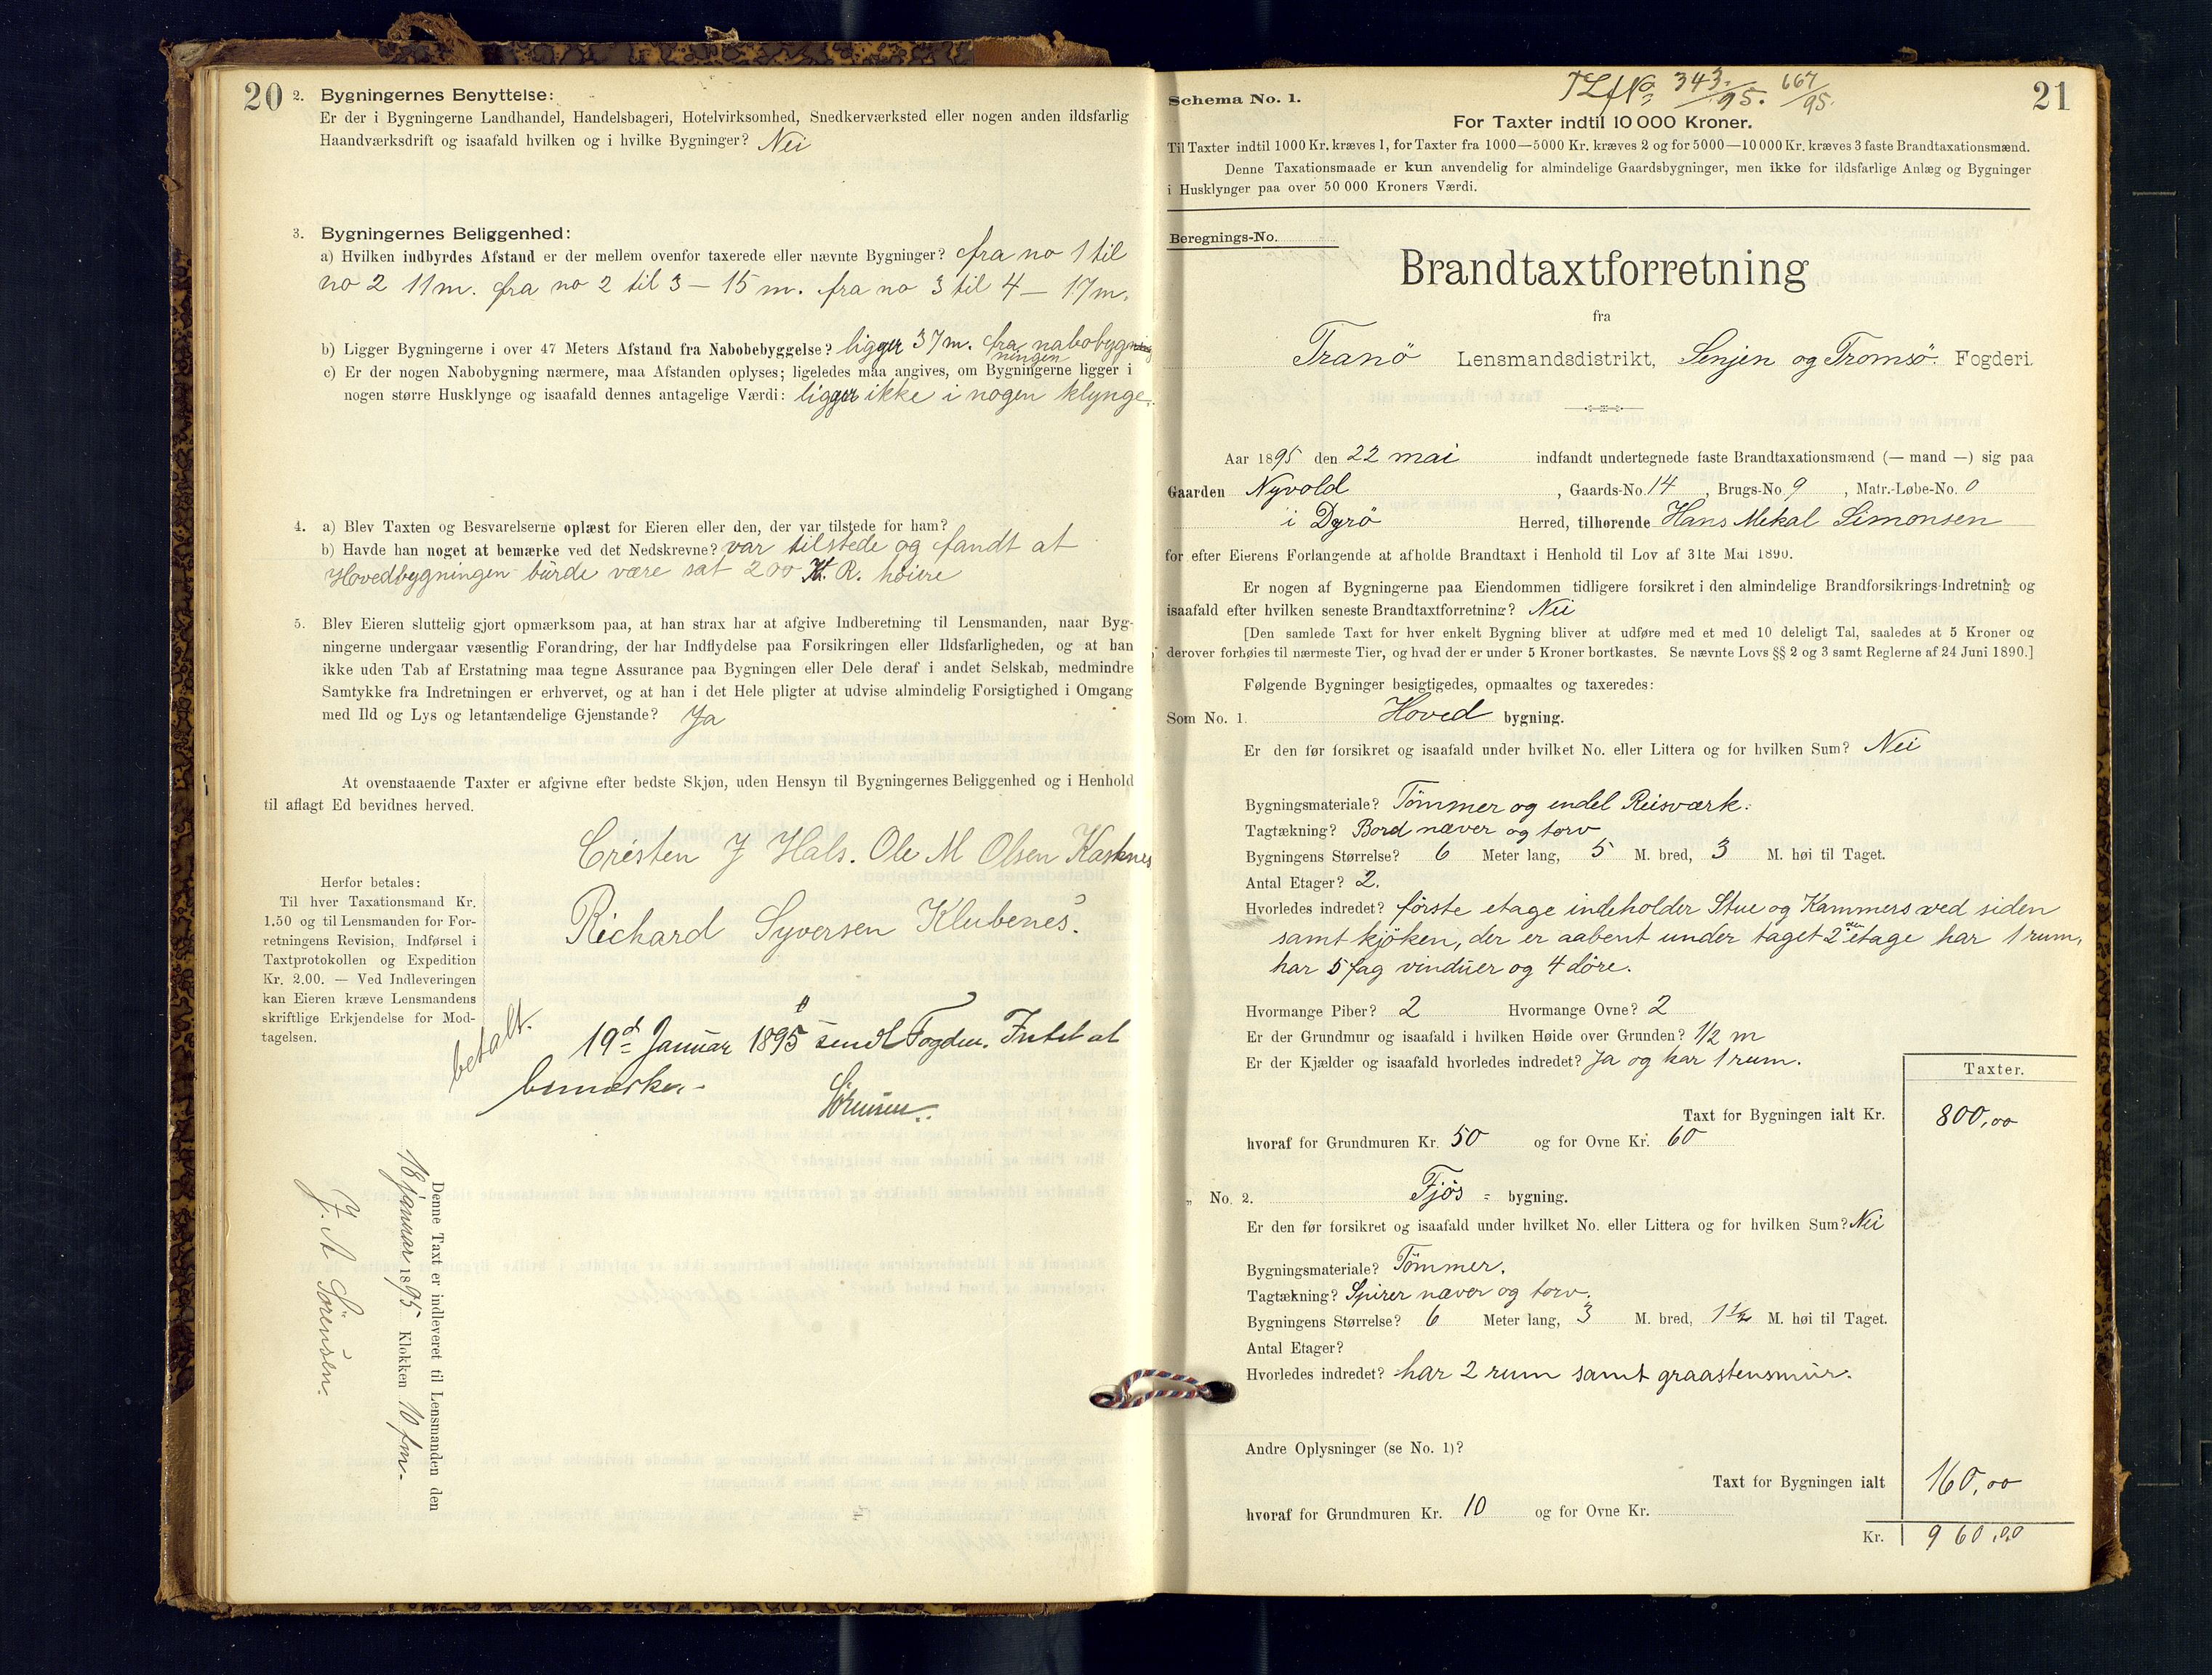 20
2. Bygningernes Benyttelse:
Er der i Bygningerne Landhandel, Handelsbageri, Hotelvirksomhed, Snedkerværksted eller nogen anden ildsfarlig
Haandværksdrift og isaafald hvilken og i hvilke Bygninger? Nei
3. Bygningernes Beliggenhed:
a) Hvilken indbyrdes Afstand er der mellem ovenfor taxerede eller nævnte Bygninger? fra no 1 til
no 2 11 m. fra no 2 til 3 — 15 m. fra no 3 til 4 — 17 m.
b) Ligger Bygningerne i over 47 Meters Afstand fra Nabobebyggelse? ligger 37 m. fra nabobyg
ningen
c) Er der nogen Nabobygning nærmere, maa Afstanden oplyses; ligeledes maa angives, om Bygningerne ligger i
nogen større Husklynge og isaafald dennes antagelige Værdi: ligger ikke i nogen klynge.
4. a) Blev Taxten og Besvarelserne oplæst for Eieren eller den, der var tilstede for ham?
b) Havde han noget at bemærke ved det Nedskrevne? var tilstede og fandt at
Hovedbygningen burde være sat 200 K. R. høiere
5. Blev Eieren sluttelig gjort opmærksom paa, at han strax har at afgive Indberetning til Lensmanden, naar Byg-
ningerne undergaar væsentlig Forandring, der har Indflydelse paa Forsikringen eller Ildsfarligheden, og at han
ikke uden Tab af Erstatning maa tegne Assurance paa Bygningen eller Dele deraf i andet Selskab, medmindre
Samtykke fra Indretningen er erhvervet, og at han i det Hele pligter at udvise almindelig Forsigtighed i Omgang
med Ild og Lys og letantændelige Gjenstande? Ja
At ovenstaaende Taxter er afgivne efter bedste Skjøn, uden Hensyn til Bygningernes Beliggenhed og i Henhold
til aflagt Ed bevidnes herved.
Cresten J Hals. Ole M Olsen Kasknes
Richard Syversen Klubenes.
Herfor betales:
Til hver Taxationsmand Kr.
1.50 og til Lensmanden for For-
retningens Revision, Indførsel i
Taxtprotokollen og Expedition
Kr. 2.00. — Ved Indleveringen
kan Eieren kræve Lensmandens
skriftlige Erkjendelse for Mod-
tagelsen.
betalt.
19d Januar 1895 sendt Fogden. Intet at
bemærke. -
Sørensen.
Denne Taxt er indleveret til Lensmanden den
18 januar 1895 Klokken 10 fm.
J. A Sörensen.
21
Schema No. 1.
TLfNo 343/95. 667/95.
For Taxter indtil 10 000 Kroner.
Til Taxter indtil 1000 Kr. kræves 1, for Taxter fra 1000—5000 Kr. kræves 2 og for 5000—10 000 Kr. kræves 3 faste Brandtaxationsmænd.
Denne Taxationsmaade er kun anvendelig for almindelige Gaardsbygninger, men ikke for ildsfarlige Anlæg og Bygninger
i Husklynger paa over 50 000 Kroners Værdi.
Beregnings-No.
Brandtaxtforretning
fra
Tranö Lensmandsdistrikt, Senjen og Tromsö Fogderi.
Aar 1895 den 22 mai indfandt undertegnede faste Brandtaxationsmænd (— mand —) sig paa
Gaarden Nyvold, Gaards-No. 14, Brugs-No. 9, Matr.-Løbe-No. 0
i Dyrö Herred, tilhørende Hans Mekal Simonsen
for efter Eierens Forlangende at afholde Brandtaxt i Henhold til Lov af 31te Mai 1890.
Er nogen af Bygningerne paa Eiendommen tidligere forsikret i den almindelige Brandforsikrings-Indretning og
isaafald efter hvilken seneste Brandtaxtforretning? Nei
[Den samlede Taxt for hver enkelt Bygning bliver at udføre med et med 10 deleligt Tal, saaledes at 5 Kroner og
derover forhøies til nærmeste Tier, og hvad der er under 5 Kroner bortkastes. Se nævnte Lovs §§ 2 og 3 samt Reglerne af 24 Juni 1890.]
Følgende Bygninger besigtigedes, opmaaltes og taxeredes:
Som No. 1. Hoved bygning.
Er den før forsikret og isaafald under hvilket No. eller Littera og for hvilken Sum? Nei
Bygningsmateriale? Tömmer og endel Reisværk.
Tagtækning? Bord næver og torv
Bygningens Størrelse? 6 Meter lang, 5 M. bred, 3 M. høi til Taget.
Antal Etager? 2.
Hvorledes indredet? förste etage indeholder Stue og Kammers ved siden
samt kjöken, der er aabent under taget 2den etage har 1 rum,
har 5 fag vinduer og 4 döre.
Hvormange Piber? 2 Hvormange Ovne? 2
Er der Grundmur og isaafald i hvilken Høide over Grunden? 1/2 m
Er der Kjælder og isaafald hvorledes indredet? Ja og har 1 rum.
Taxter.
Taxt for Bygningen ialt Kr. 800,00
hvoraf for Grundmuren Kr. 50 og for Ovne Kr. 60
„ No. 2. Fjös - bygning.
Er den før forsikret og isaafald under hvilket No. eller Littera og for hvilken Sum? Nei
Bygningsmateriale? Tömmer.
Tagtækning? Spirer næver og torv.
Bygningens Størrelse? 6 Meter lang, 3 M. bred, 1 1/2 M. høi til Taget.
Antal Etager?
Hvorledes indredet? har 2 rum samt graastensmur.
Andre Oplysninger (se No. 1)?
Taxt for Bygningen ialt 160,00
hvoraf for Grundmuren Kr. 10 og for Ovne Kr.
Kr. 960,00